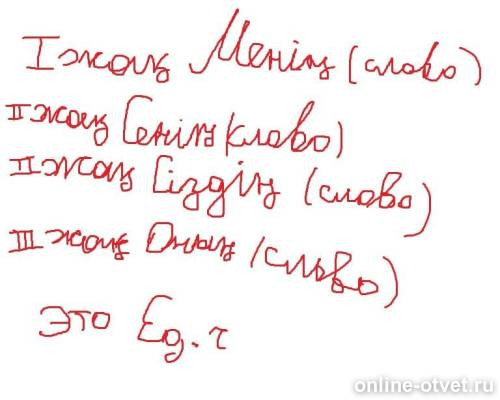 I жақ Менің (слово)
II жақ Сенің (слово)
II жақ Сіздің (слово)
III жақ Оның (слово)
это Ед. ч
online-otvet.ru